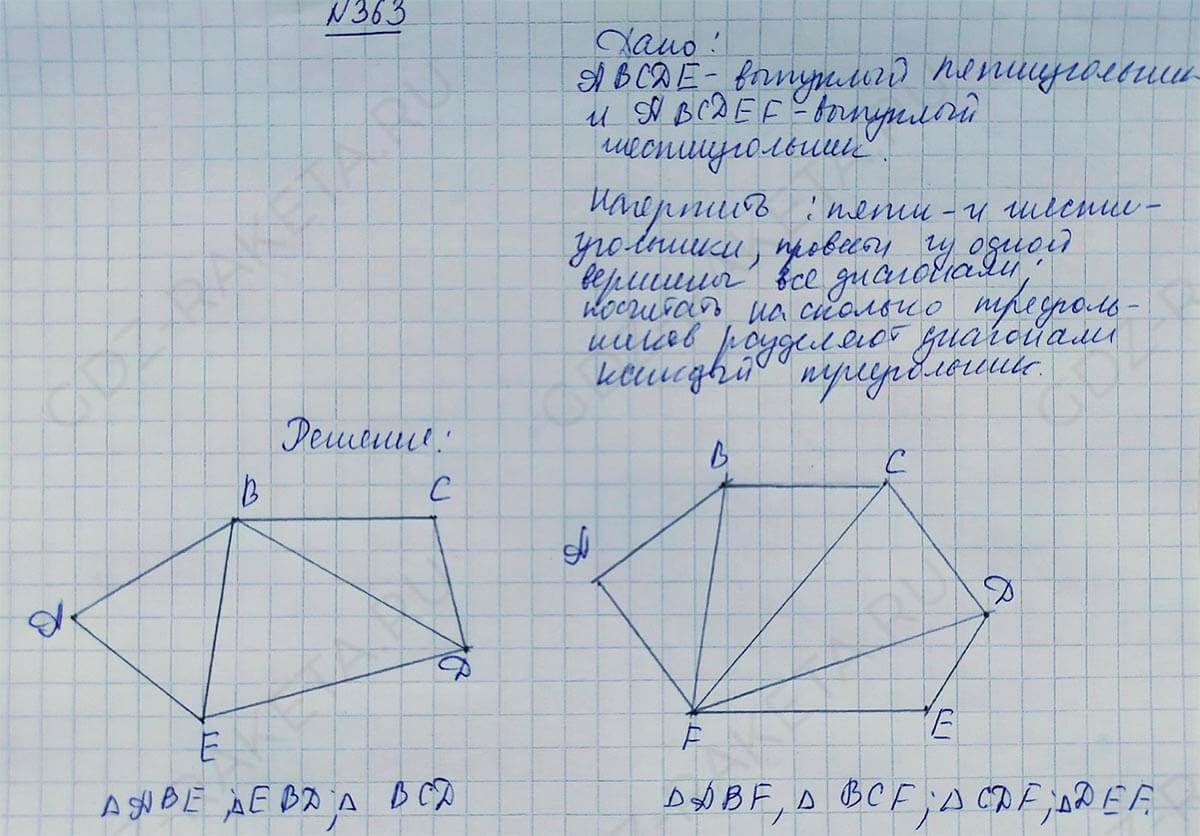 N363
Дано:
ABCDE - выпуклый пятиугольник
и ABCDEF - выпуклый
шестиугольник.
Начертить: пяти- и шести-
угольники, провести из одной
вершины все диагонали;
посчитать на сколько треуголь-
ников разделяют диагонали
каждый треугольник.
Решение:
B
C
A
D
E
B
C
A
D
F
E
△ABE; △EBD; △ BCD
△ABF, △ BCF; △CDF; △DEF.
GDZ-RAKETA.RU
GDZ-RAKETA.RU
GDZ-RAKETA.RU
GDZ-RAKETA.RU